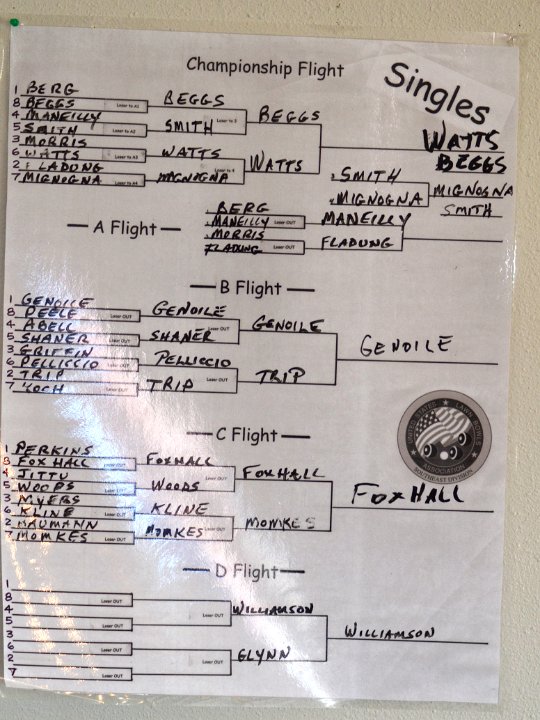 Championship Flight
Singles
1 BERG
8 BEGGS
4 MANEILLY
5 SMITH
3 MORRIS
6 WATTS
2 FLADUNG
7 MIGNOGNA
Loser to A1
Loser to A2
Loser to A3
Loser to A4
BEGGS
SMITH
WATTS
MIGNOGNA
BEGGS
WATTS
WATTS
BEGGS
SMITH
MIGNOGNA
MIGNOGNA
SMITH
A Flight
BERG
MANEILLY
MORRIS
FLADUNG
Loser OUT
Loser OUT
MANEILLY
FLADUNG
B Flight
1 GENOILE
8 DEELE
4 ABELL
5 SHANER
3 GRIFFIN
6 PELLICCIO
2 TRIP
7 KOCH
Loser OUT
Loser OUT
Loser OUT
Loser OUT
GENOILE
SHANER
PELLICCIO
TRIP
Loser OUT
Loser OUT
GENOILE
TRIP
GENOILE
C Flight
1 PERKINS
8 FOXHALL
4 JITTU
5 WOODS
3 MYERS
6 KLINE
2 NAUMANN
7 MOMKES
Loser OUT
Loser OUT
Loser OUT
FOXHALL
WOODS
KLINE
MOMKES
Loser OUT
Loser OUT
FOXHALL
MOMKES
FOXHALL
UNITED STATES LAWN BOWLS
ASSOCIATION
SOUTHEAST DIVISION
D Flight
1
8
4
5
3
6
2
7
Loser OUT
Loser OUT
Loser OUT
Loser OUT
Loser OUT
Loser OUT
WILLIAMSON
GLYNN
WILLIAMSON